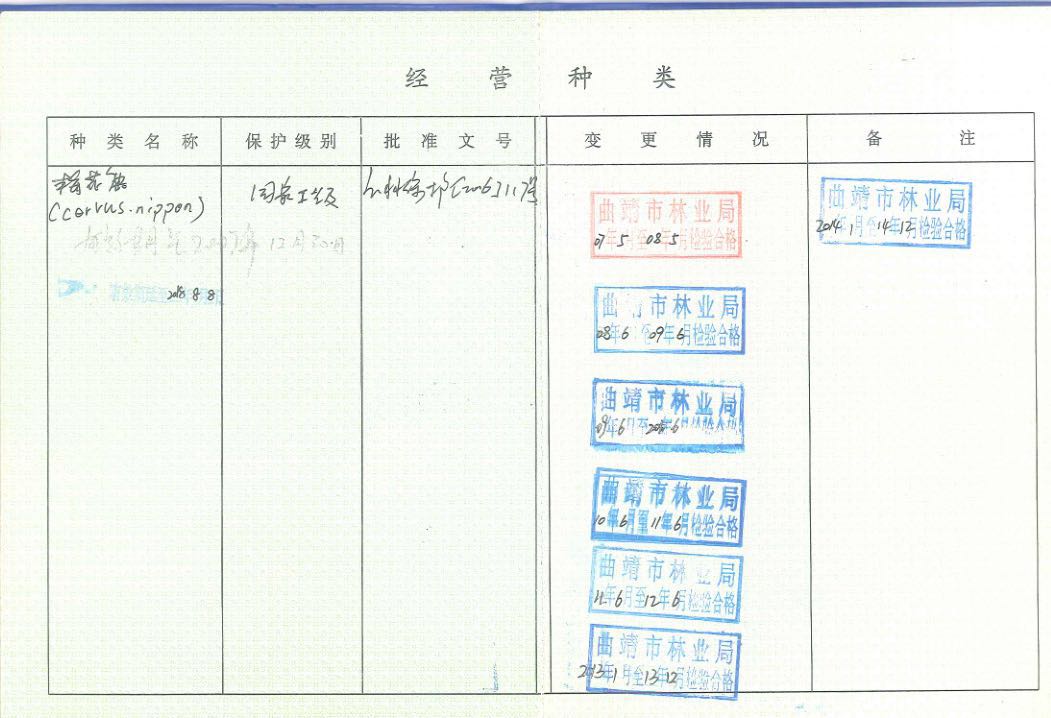 经营种类
种类名称 保护级别 批准文号 变更情况 备注
梅花鹿
(cervus.nippon)
国家Ⅰ级
12月30日
2018 8 8
曲靖市林业局
07年5月至08年5月检验合格
曲靖市林业局
08年6月至09年6月检验合格
曲靖市林业局
09年6月至 年6月检验合格
曲靖市林业局
10年6月至11年6月检验合格
曲靖市林业局
11年6月至12年6月检验合格
曲靖市林业局
2013年1月至13年12月检验合格
曲靖市林业局
2014年1月至14年12月检验合格